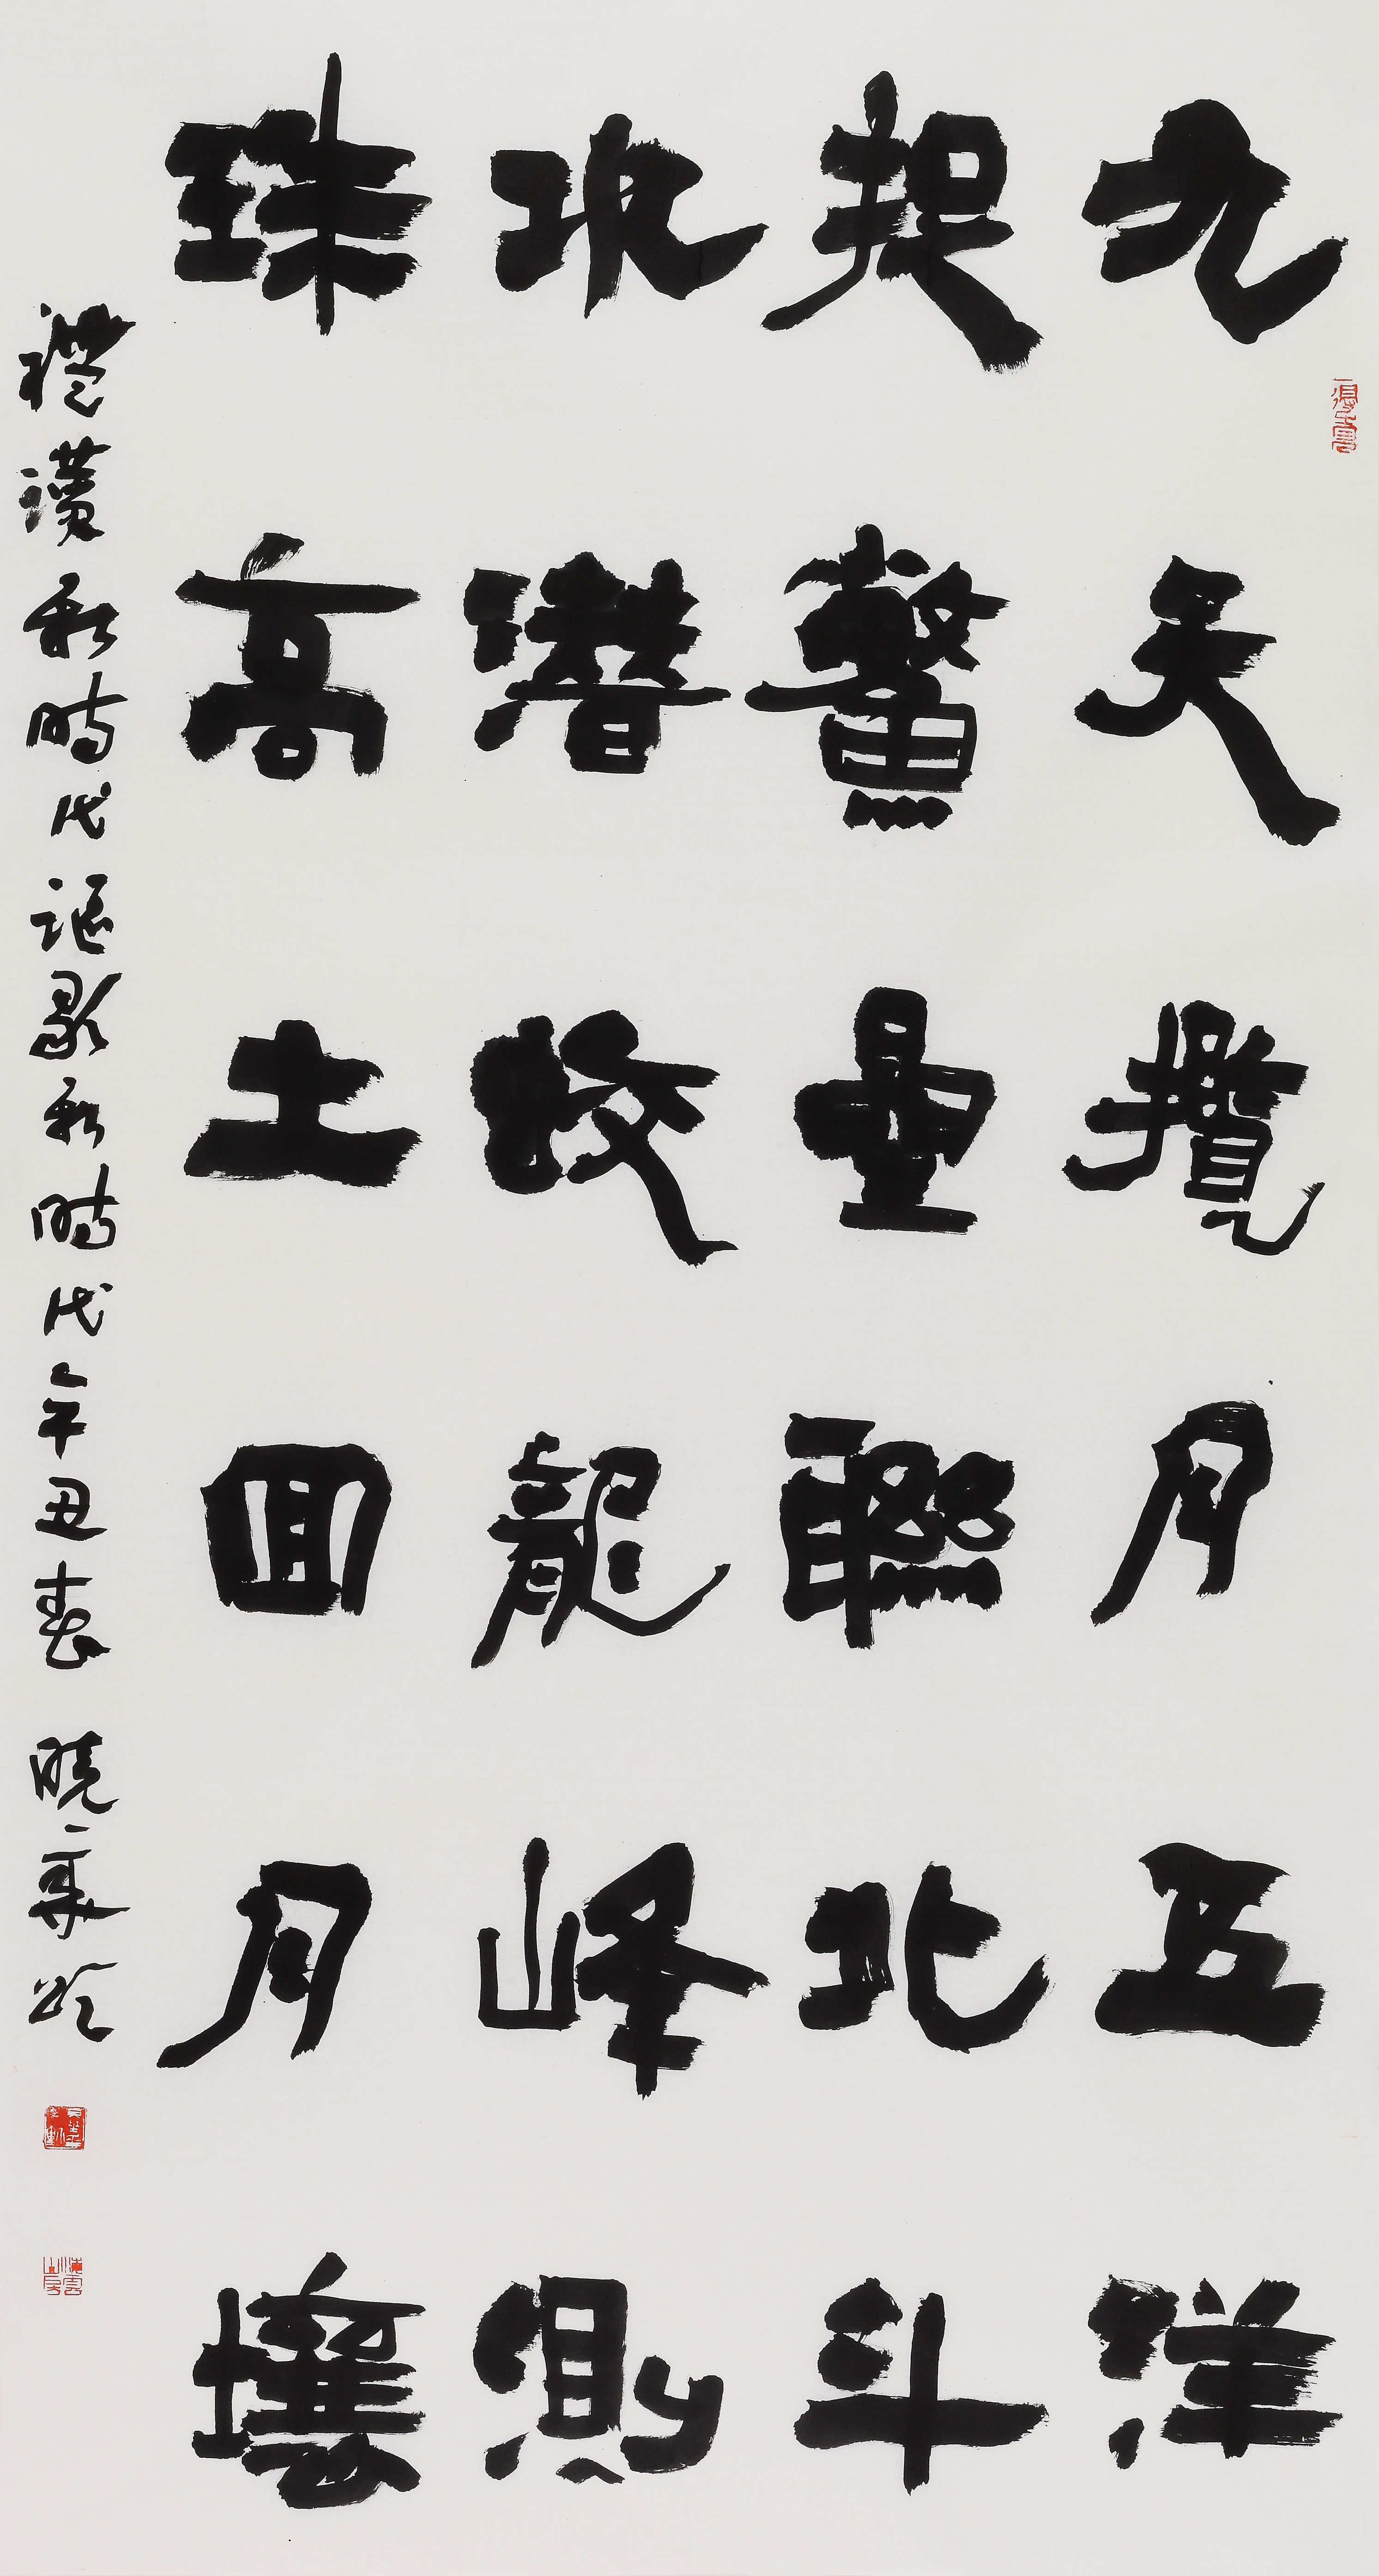 九天攬月五洋
捉鱉量聯北斗
水潛蛟龍峰測
珠高土回月壤
禮讚新時代謳歌新時代辛丑春 曉華